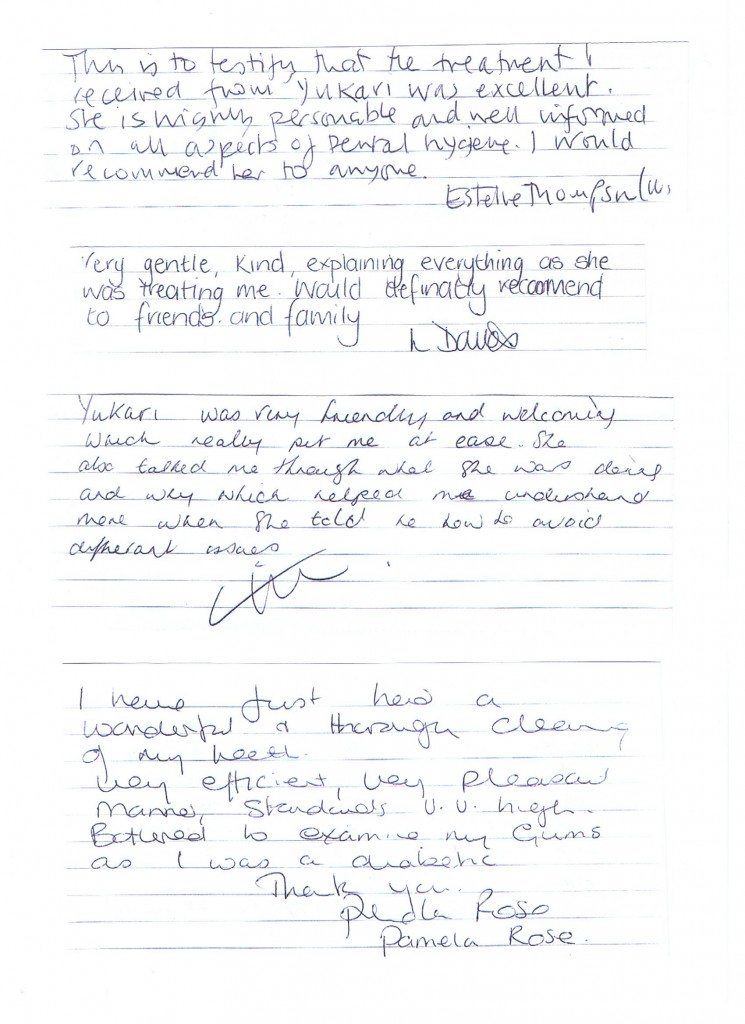 This is to testify that the treatment I
received from Yukari was excellent.
She is highly personable and well informed
on all aspects of Dental hygiene. I would
recommend her to anyone.
Estelle Thompson
Very gentle, kind, explaining everything as she
was treating me. Would definatly recommend
to friends. and family
L Davies
Yukari was very friendly and welcoming
which really put me at ease. She
also talked me through what she was doing
and why which helped me understand
more when she told me how to avoid
differant issues
I have just had a
wonderful & thorough cleaning
of my teeth.
Very efficient, very pleasant
manner, Standards V.V. high.
Bothered to examine my Gums
as I was a diabetic
Thank you.
Pamela Rose
Pamela Rose.